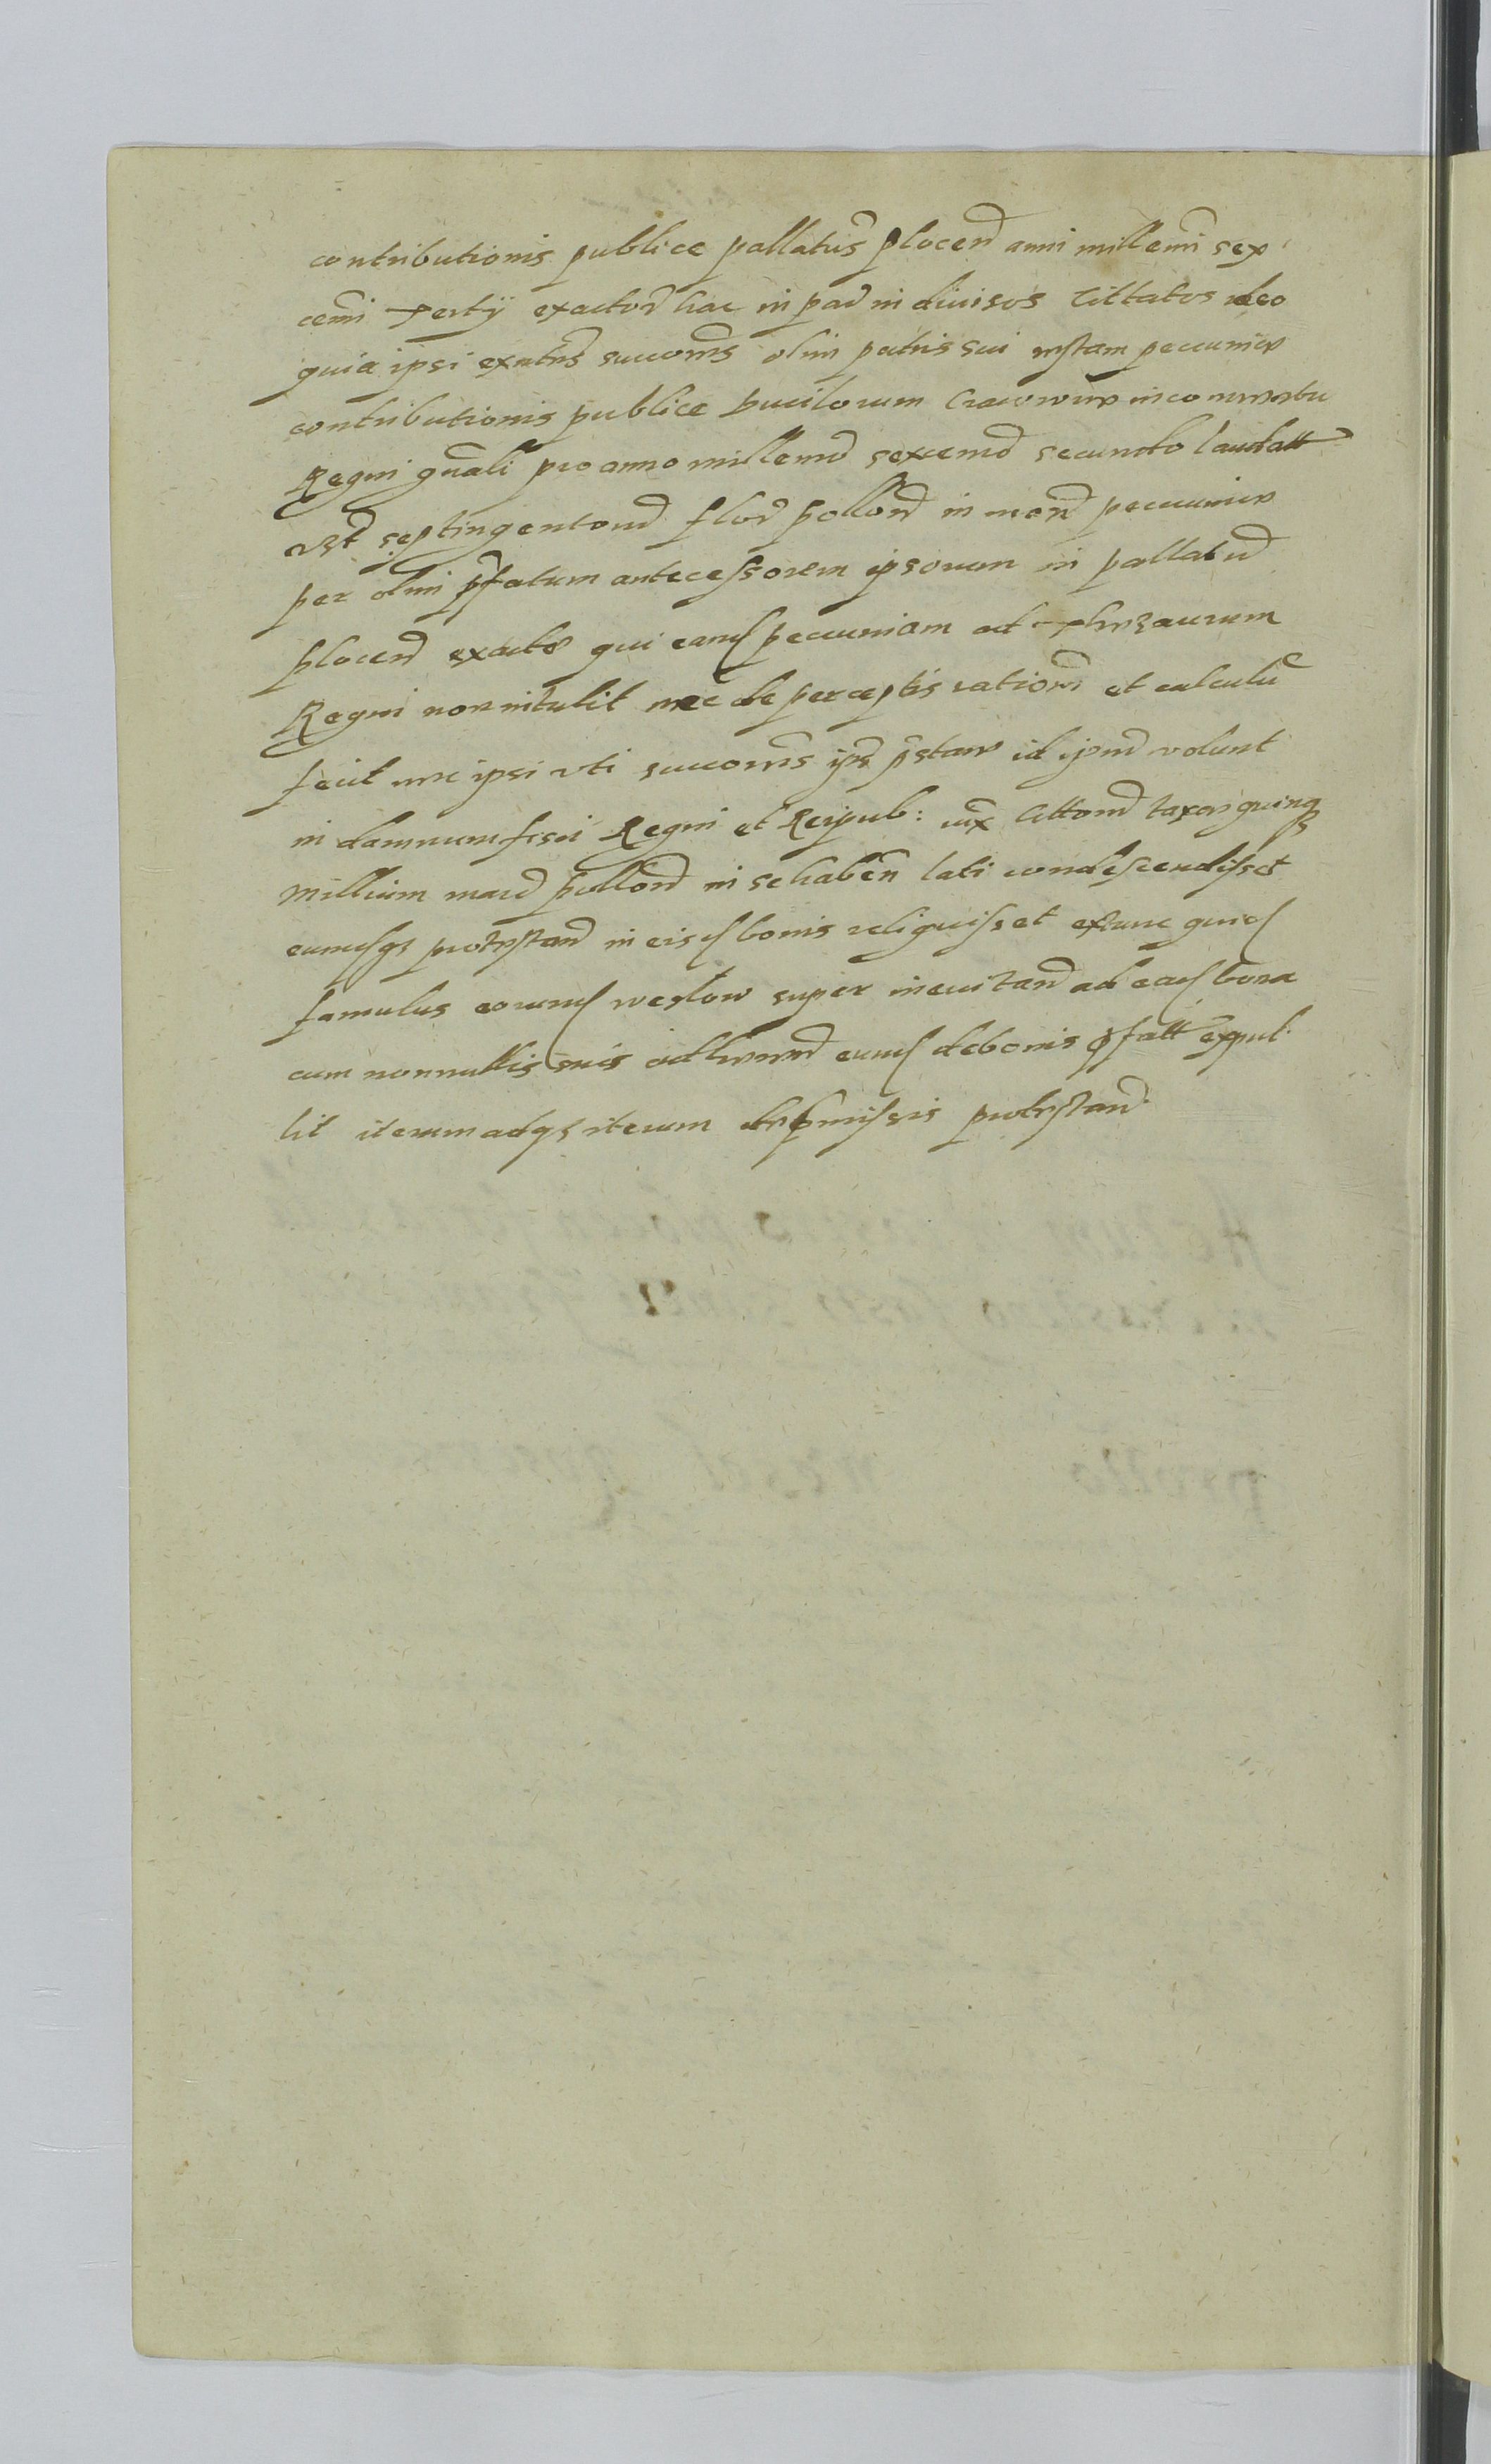 contributionis publice pallatus plocen anni millemi sex
cemi tertÿ exactor hac in par indivisos Cittatos ideo
quia ipsi exutris succoris olim patris sui restam pecuniæ
contributionis publice ducilorum Cracoviæ in conventu
Regni gnali pro anno millemo sexcemo secundo laudatt
vzt septingentorum flor pollon in mon pecuniæ
per olim pfatum antecessorem ipsorum in pallatu
plocen exacto qui eand pecuniam ad thesaurum
Regni non intulit nec de perceptis rationes et calculu
fecit nec ipsi uti succoris ips pstare id ipsum volunt
in damnum fisci Regni et Reipub: iux Cittom taxam quinq
millium marc pollon in se haben lati condescendisset
eumqs protestand in eisd bonis reliquisset extunc quid
famulus eorund super inevitand ad ead bona
cum nonnullis suis eund de bonis pfatt expul
lit iterum adqs iterum de pmissis protestand